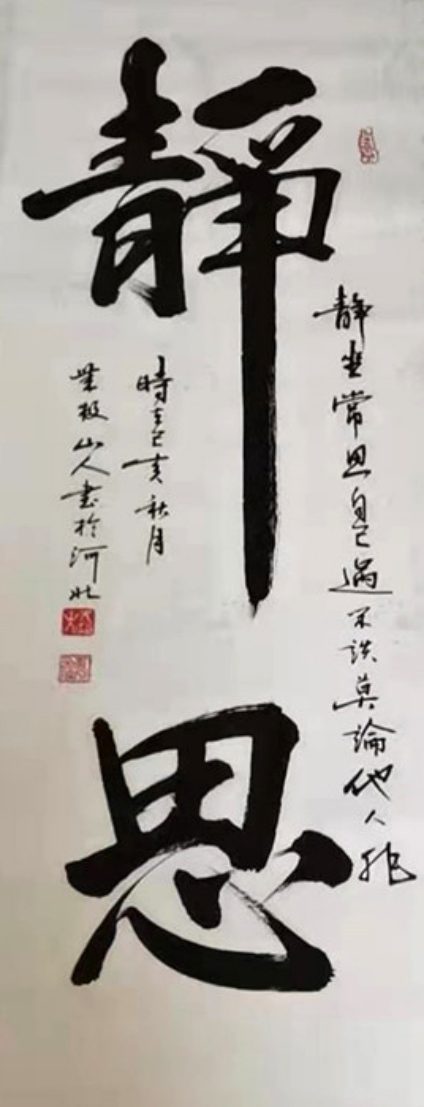 靜坐常思自己過不談莫論他人非
靜思
時在己亥秋月
山人書於河北